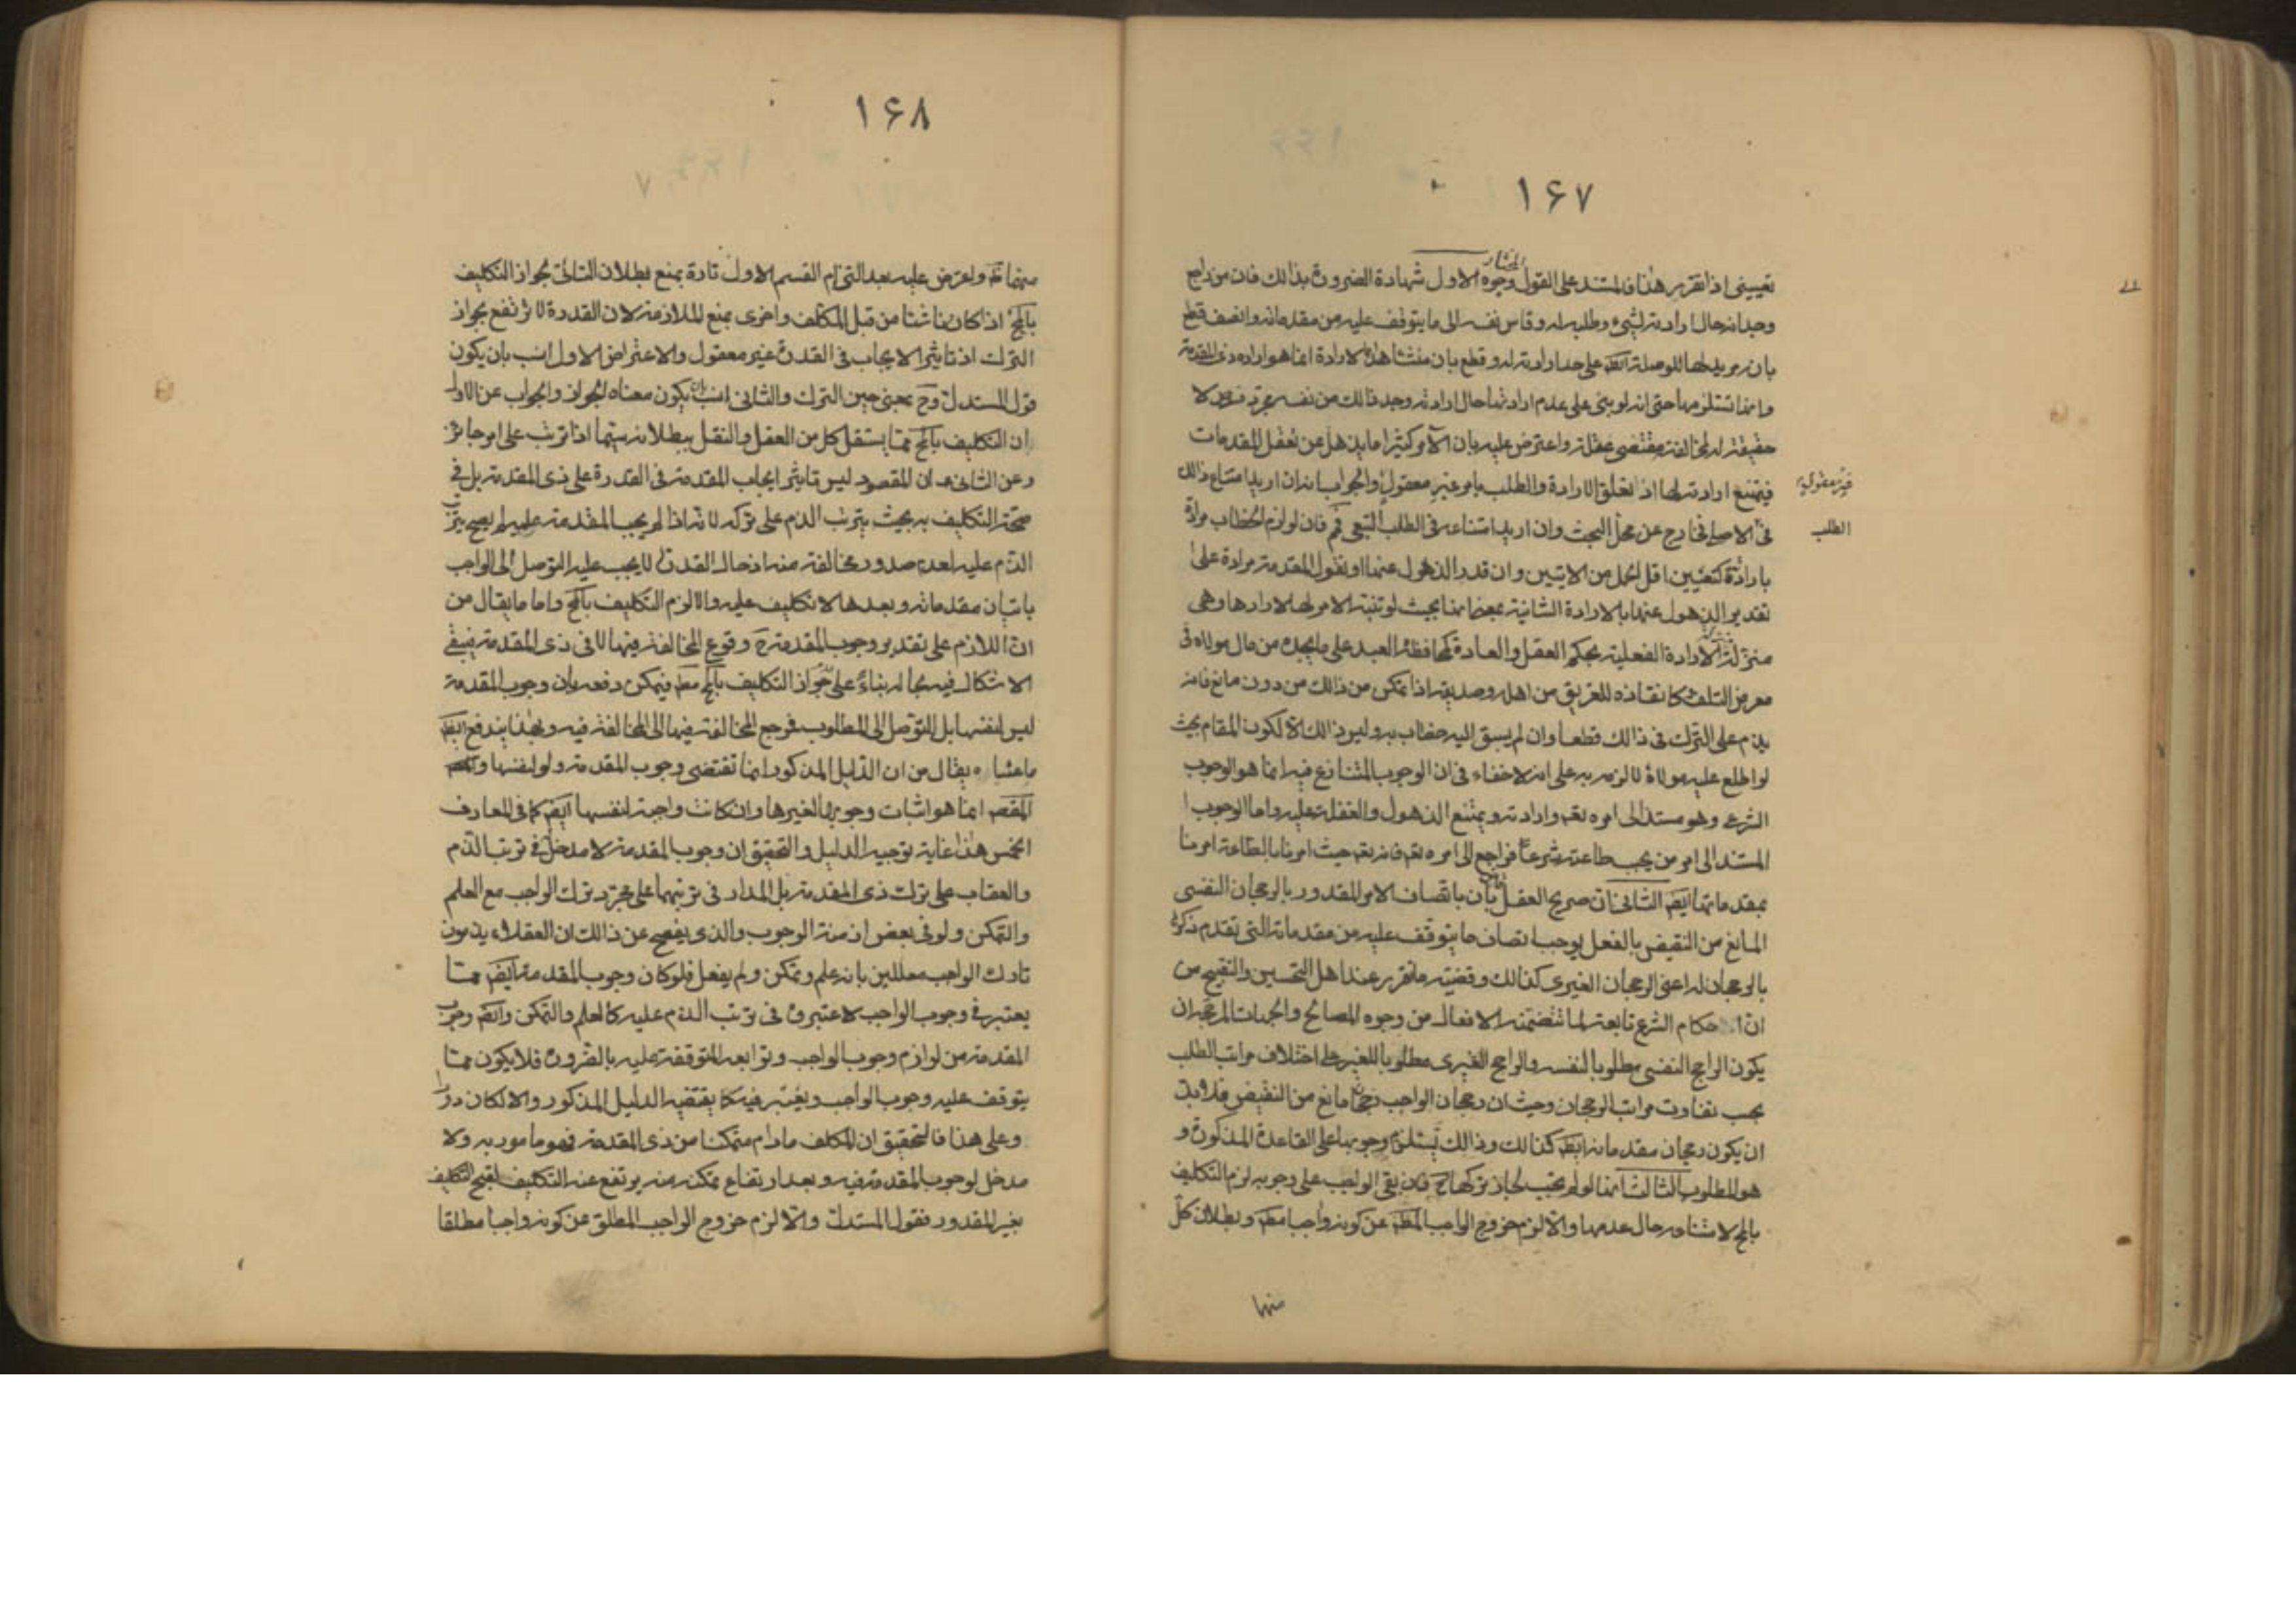 ١۶٧
المختار
تعييني اذا تقرر هذا فالمستند على القول وجوه الاول شهادة الضرورة بذالك فان من راجع
وجدانه حال ارادته لشيء وطلبه له وقاس نفسه الى ما يتوقف عليه من مقدماته وانصف قطع
بانه مريد لها للوصلة ايضا على حد ارادته له وقطع بان منشا هذه الارادة انما هو اراده ذى المقدمة
وانها تستلزمها حتى انه لو بنى على عدم ارادتها حال ارادته وجد ذالك من نفسه مجرد فرض لا
حقيقة له لمخالفته مقتضى عقله واعترض عليه بان الآمر كثيرا ما يذهل عن تعقل المقدمات
فيمتنع ارادته لها اذ تعلق الارادة والطلب بامر غير معقول والجواب انه ان اريد امتناع ذالك
غير معقولية
الطلب
فى الاصلى فخارج عن محل البحث وان اريد امتناعه فى الطلب التبعى فمم فان لوازم الخطاب مرادة
بارادته كتعيين اقل الحمل من الايتين وان قدر الذهول عنها او نقول المقدمة مرادة على
تقدير الذهول عنها بالارادة الشانية بمعنى انها بحيث لو تنبه الامر لها لارادها وهى
منزلة الارادة الفعلية بحكم العقل والعادة كمحافظة العبد على ما يجده من مال مولاه فى
معرض التلف كانقاذه للغريق من اهله وصديقه اذا تمكن من ذالك من دون مانع فانه
يذم على الترك فى ذالك قطعا وان لم يسبق اليه خطاب به وليس ذالك الا لكون المقام بحيث
لو اطلع عليه مولاه لالزمه به على انه لا خفاء فى ان الوجوب المتنازع فيه انما هو الوجوب
الشرعى وهو مستند الى امره تعم وارادته ويمتنع الذهول والغفلة عليه واما الوجوب
المستند الى امر من يجب طاعته شرعا فراجع الى امره تعم فانه تعم حيث امرنا بالطاعة امرنا
بمقدماتها ايضا الثانى ان صريح العقل بان باتصاف الامر المقدور بالرجحان النفسى
المانع من النقيض بالفعل يوجب اتصاف ما يتوقف عليه من مقدماته التى تقدم ذكره
بالرجحان له اعنى الرجحان الغيرى كذالك وقضية ما تقرر عند اهل التحسين والتقبيح من
ان احكام الشرع تابعة لما تتضمنه الافعال من وجوه المصالح والجهات المرجحة ان
يكون الراجح النفسى مطلوبا لنفسه والراجح الغيرى مطلوبا للغير على اختلاف مراتب الطلب
بحسب تفاوت مراتب الرجحان وحيث ان رجحان الواجب رجحان مانع من النقيض فلا بد
ان يكون رجحان مقدماته ايضا كذالك وذالك يستلزم وجوبها على القاعدة المذكورة و
هو المطلوب الثالث انها لو لم يجب لجاز تركها ح فان بقى الواجب على وجوبه لزم التكليف
بالمح لامتناعه حال عدمها والا لزم خروج الواجب المط عن كونه واجبا مط وبطلان كل
منها
١۶٨
منهما ظ واعترض عليه بعد التزام القسم الاول تارة بمنع بطلان التالى لجواز التكليف
بالمح اذا كان ناشئا من قبل المكلف واخرى بمنع الملازمة لان القدرة لا ترتفع بجواز
الترك اذ تاثير الايجاب فى القدرة غير معقول والاعتراض الاول انسب بان يكون
قول المستدل وح بمعنى حين الترك والثانى انسب بان يكون معناه الجواز والجواب عن الاول
ان التكليف بالمح مما يستقل كل من العقل والنقل ببطلانه سيما اذا ترتب على امر جائز
وعن الثانى ان المقصود ليس تاثير ايجاب المقدمة فى القدرة على ذى المقدمة بل فى
صحة التكليف به بحيث يترتب الذم على تركه لانه اذا لم يجب المقدمة عليه لم يصح ترتب
الذم عليه لعدم صدور مخالفة منه اذ حال القدرة لا يجب عليه التوصل الى الواجب
باتيان مقدماته وبعدها لا تكليف عليه والا لزم التكليف بالمح واما ما يقال من
ان اللازم على تقدير وجوب المقدمة ح وقوع المخالفة فيها لا فى ذى المقدمة فيبقى
الاشكال فيه بحاله بناء على جواز التكليف بالمح مط فيمكن دفعه بان وجوب المقدمة
ليس لنفسها بل للتوصل الى المطلوب فرجع المخالفة فيها الى المخالفة فيه وبهذا يندفع ايضا
ما عساه يقال من ان الدليل المذكور انما تقتضى وجوب المقدمة ولو لنفسها و
المقصد انما هو اثبات وجوبها لغيرها وان كانت واجبة لنفسها ايضا كما فى المعارف
الخمس هذا غاية توجيه الدليل والتحقيق ان وجوب المقدمة لا مدخل له فى ترتب الذم
والعقاب على ترك ذى المقدمة بل المدار فى ترتبهما على مجرد ترك الواجب مع العلم
والتمكن ولو فى بعض ازمنة الوجوب والذى يفصح عن ذالك ان العقلاء يذمون
تارك الواجب معللين بانه علم وتمكن ولم يفعل فلو كان وجوب المقدمة ايضا مما
يعتبر فى وجوب الواجب لاعتبروه فى ترتب الذم عليه كالعلم والتمكن وايضا وجوب
المقدمة من لوازم وجوب الواجب وتوابعه المتوقفة عليه بالضرورة فلا يكون مما
يتوقف عليه وجوب الواجب ويعتبر فيه كما يقتضيه الدليل المذكور والا لكان دورا
وعلى هذا فالتحقيق ان المكلف مادام متمكنا من ذى المقدمة فهو مامور به ولا
مدخل لوجوب المقدمة فيه وبعد ارتفاع تمكنه منه يرتفع عنه التكليف لقبح التكليف
بغير المقدور فقول المستدل والا لزم خروج الواجب المطلق عن كونه واجبا مطلقا